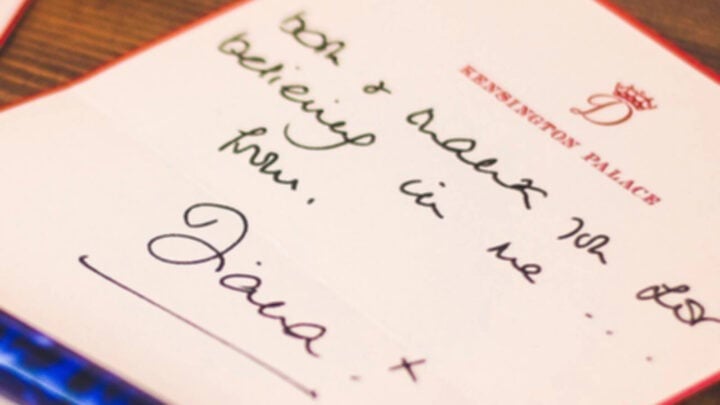 D
KENSINGTON PALACE
& thank you for
believing in me ....
from.
Diana. x